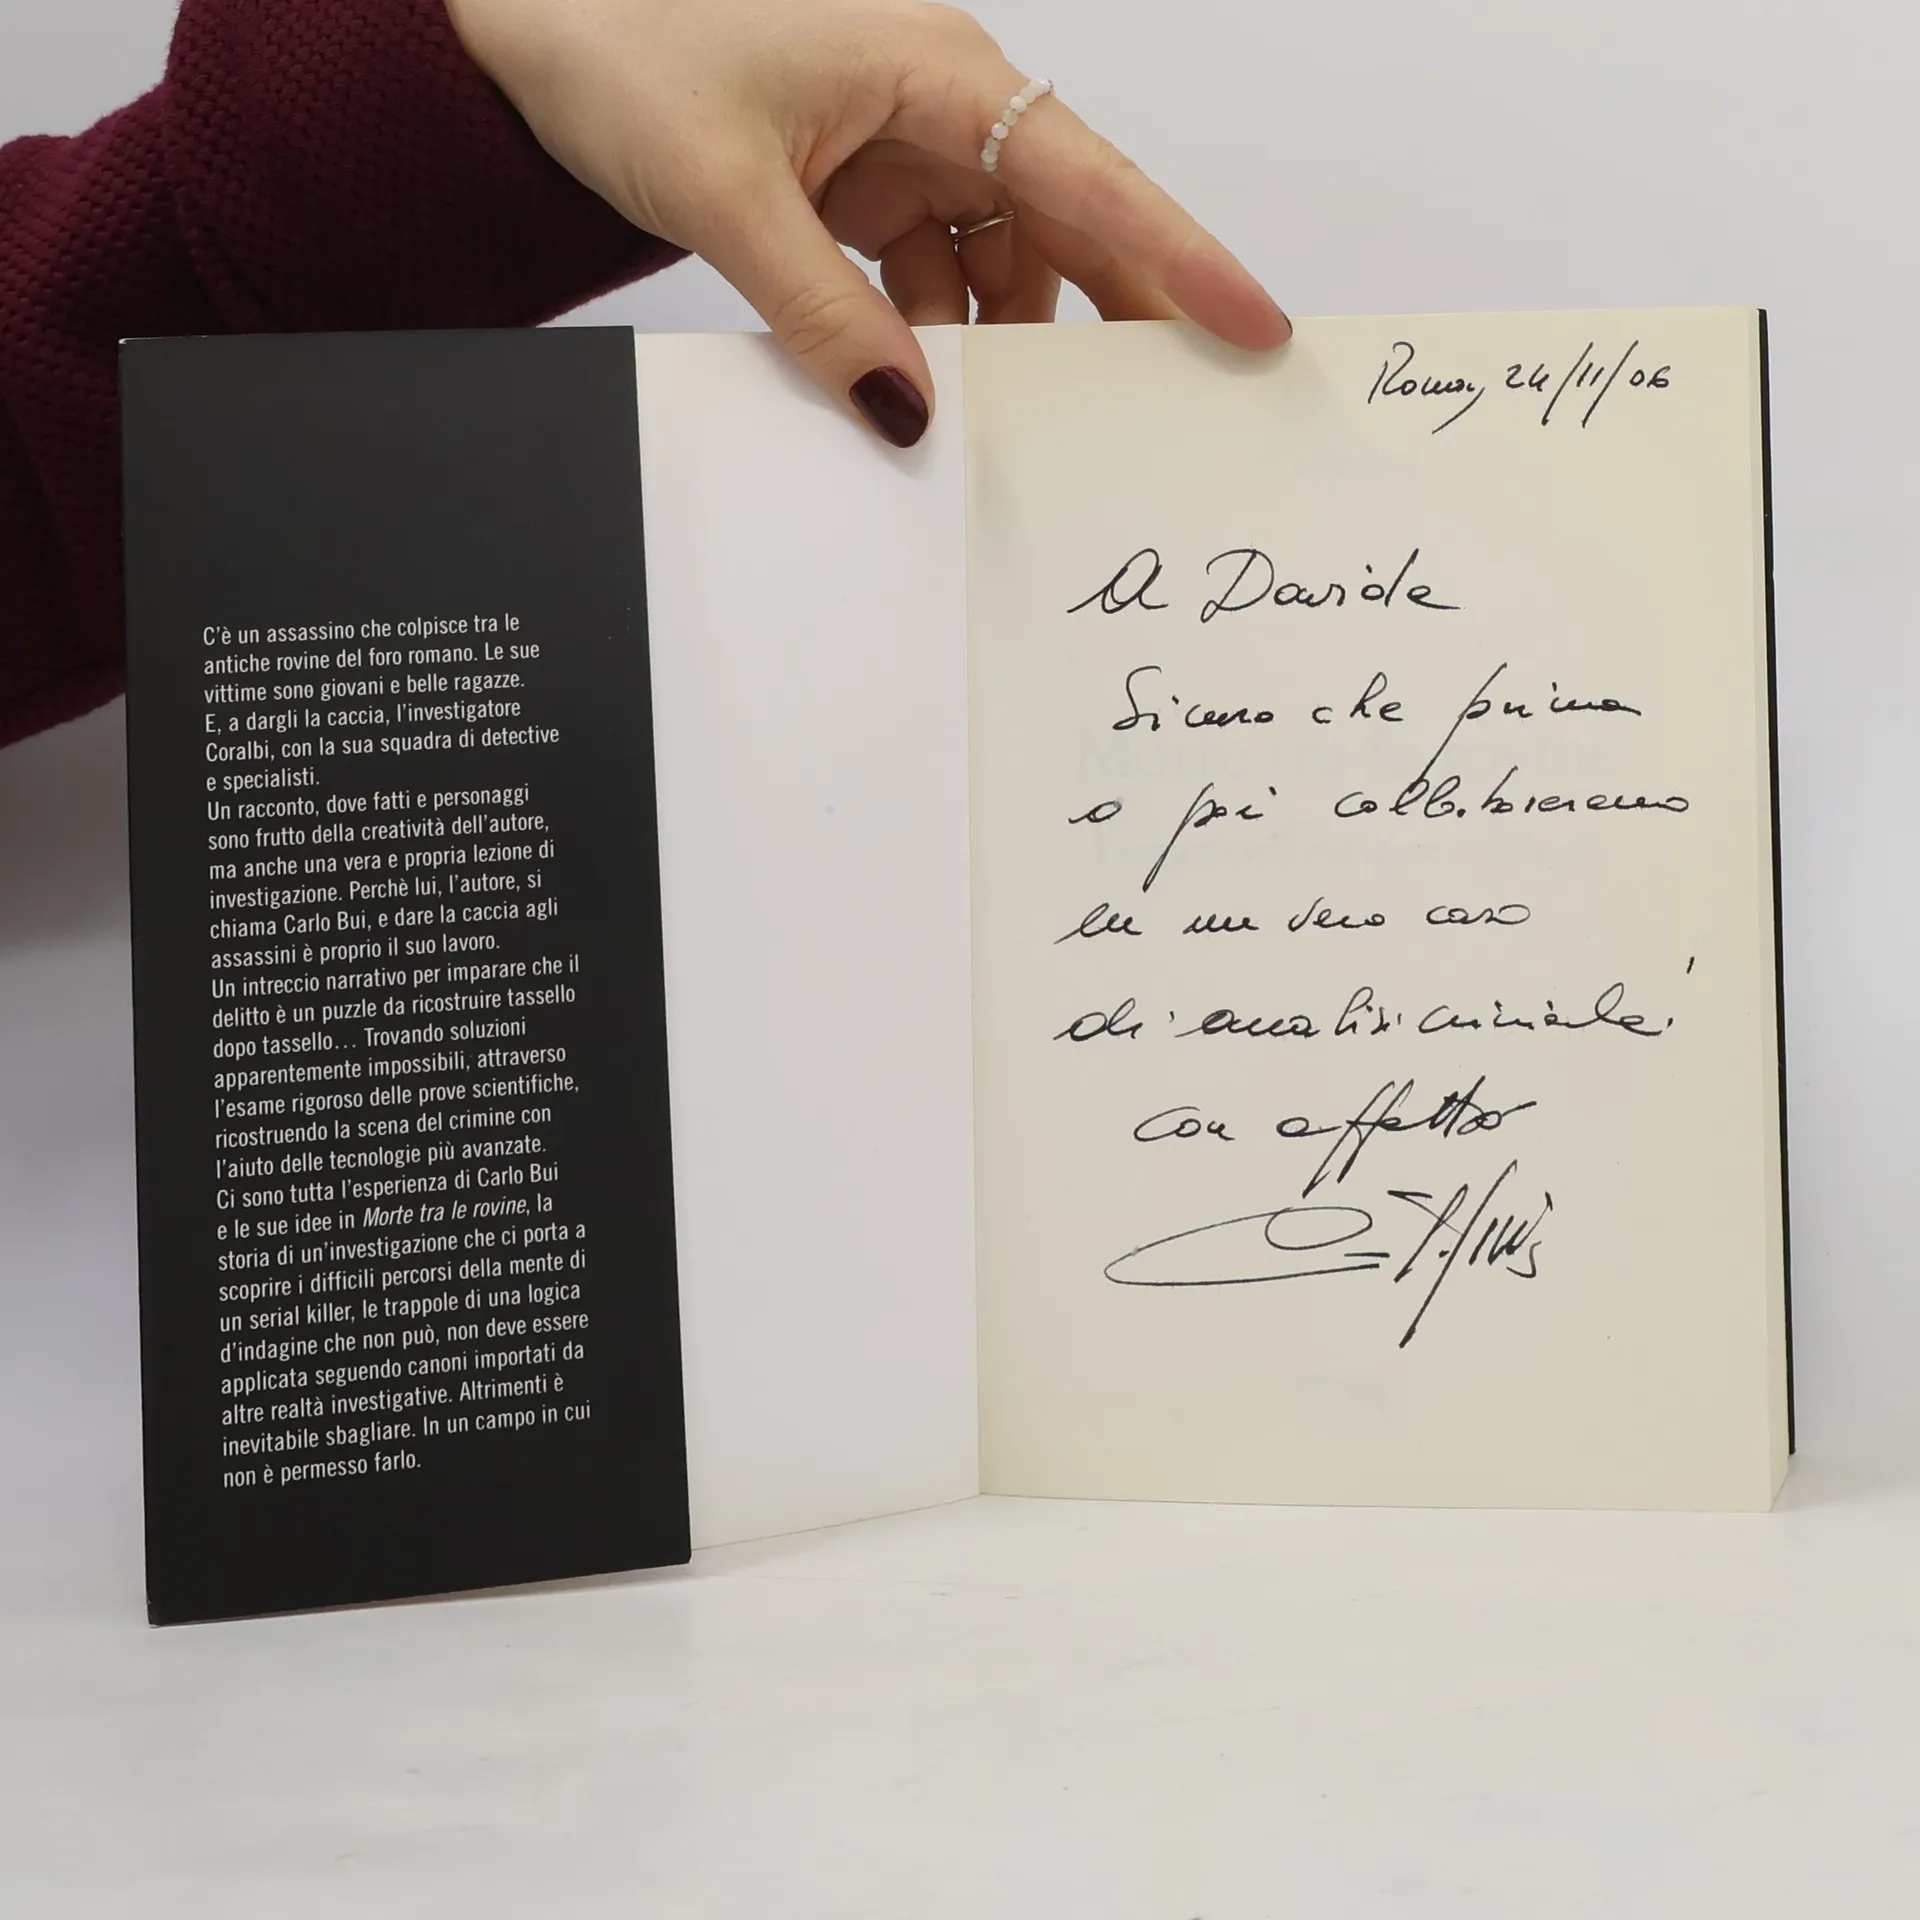 C'è un assassino che colpisce tra le
antiche rovine del foro romano. Le sue
vittime sono giovani e belle ragazze.
E, a dargli la caccia, l'investigatore
Coralbi, con la sua squadra di detective
e specialisti.
Un racconto, dove fatti e personaggi
sono frutto della creatività dell'autore,
ma anche una vera e propria lezione di
investigazione. Perchè lui, l'autore, si
chiama Carlo Bui, e dare la caccia agli
assassini è proprio il suo lavoro.
Un intreccio narrativo per imparare che il
delitto è un puzzle da ricostruire tassello
dopo tassello... Trovando soluzioni
apparentemente impossibili, attraverso
l'esame rigoroso delle prove scientifiche,
ricostruendo la scena del crimine con
l'aiuto delle tecnologie più avanzate.
Ci sono tutta l'esperienza di Carlo Bui
e le sue idee in Morte tra le rovine, la
storia di un'investigazione che ci porta a
scoprire i difficili percorsi della mente di
un serial killer, le trappole di una logica
d'indagine che non può, non deve essere
applicata seguendo canoni importati da
altre realtà investigative. Altrimenti è
inevitabile sbagliare. In un campo in cui
non è permesso farlo.
Roma, 24/11/06
A Davide
Sicuro che prima
o poi collaboreremo
in un vero caso
di analisi criminale!
con affetto